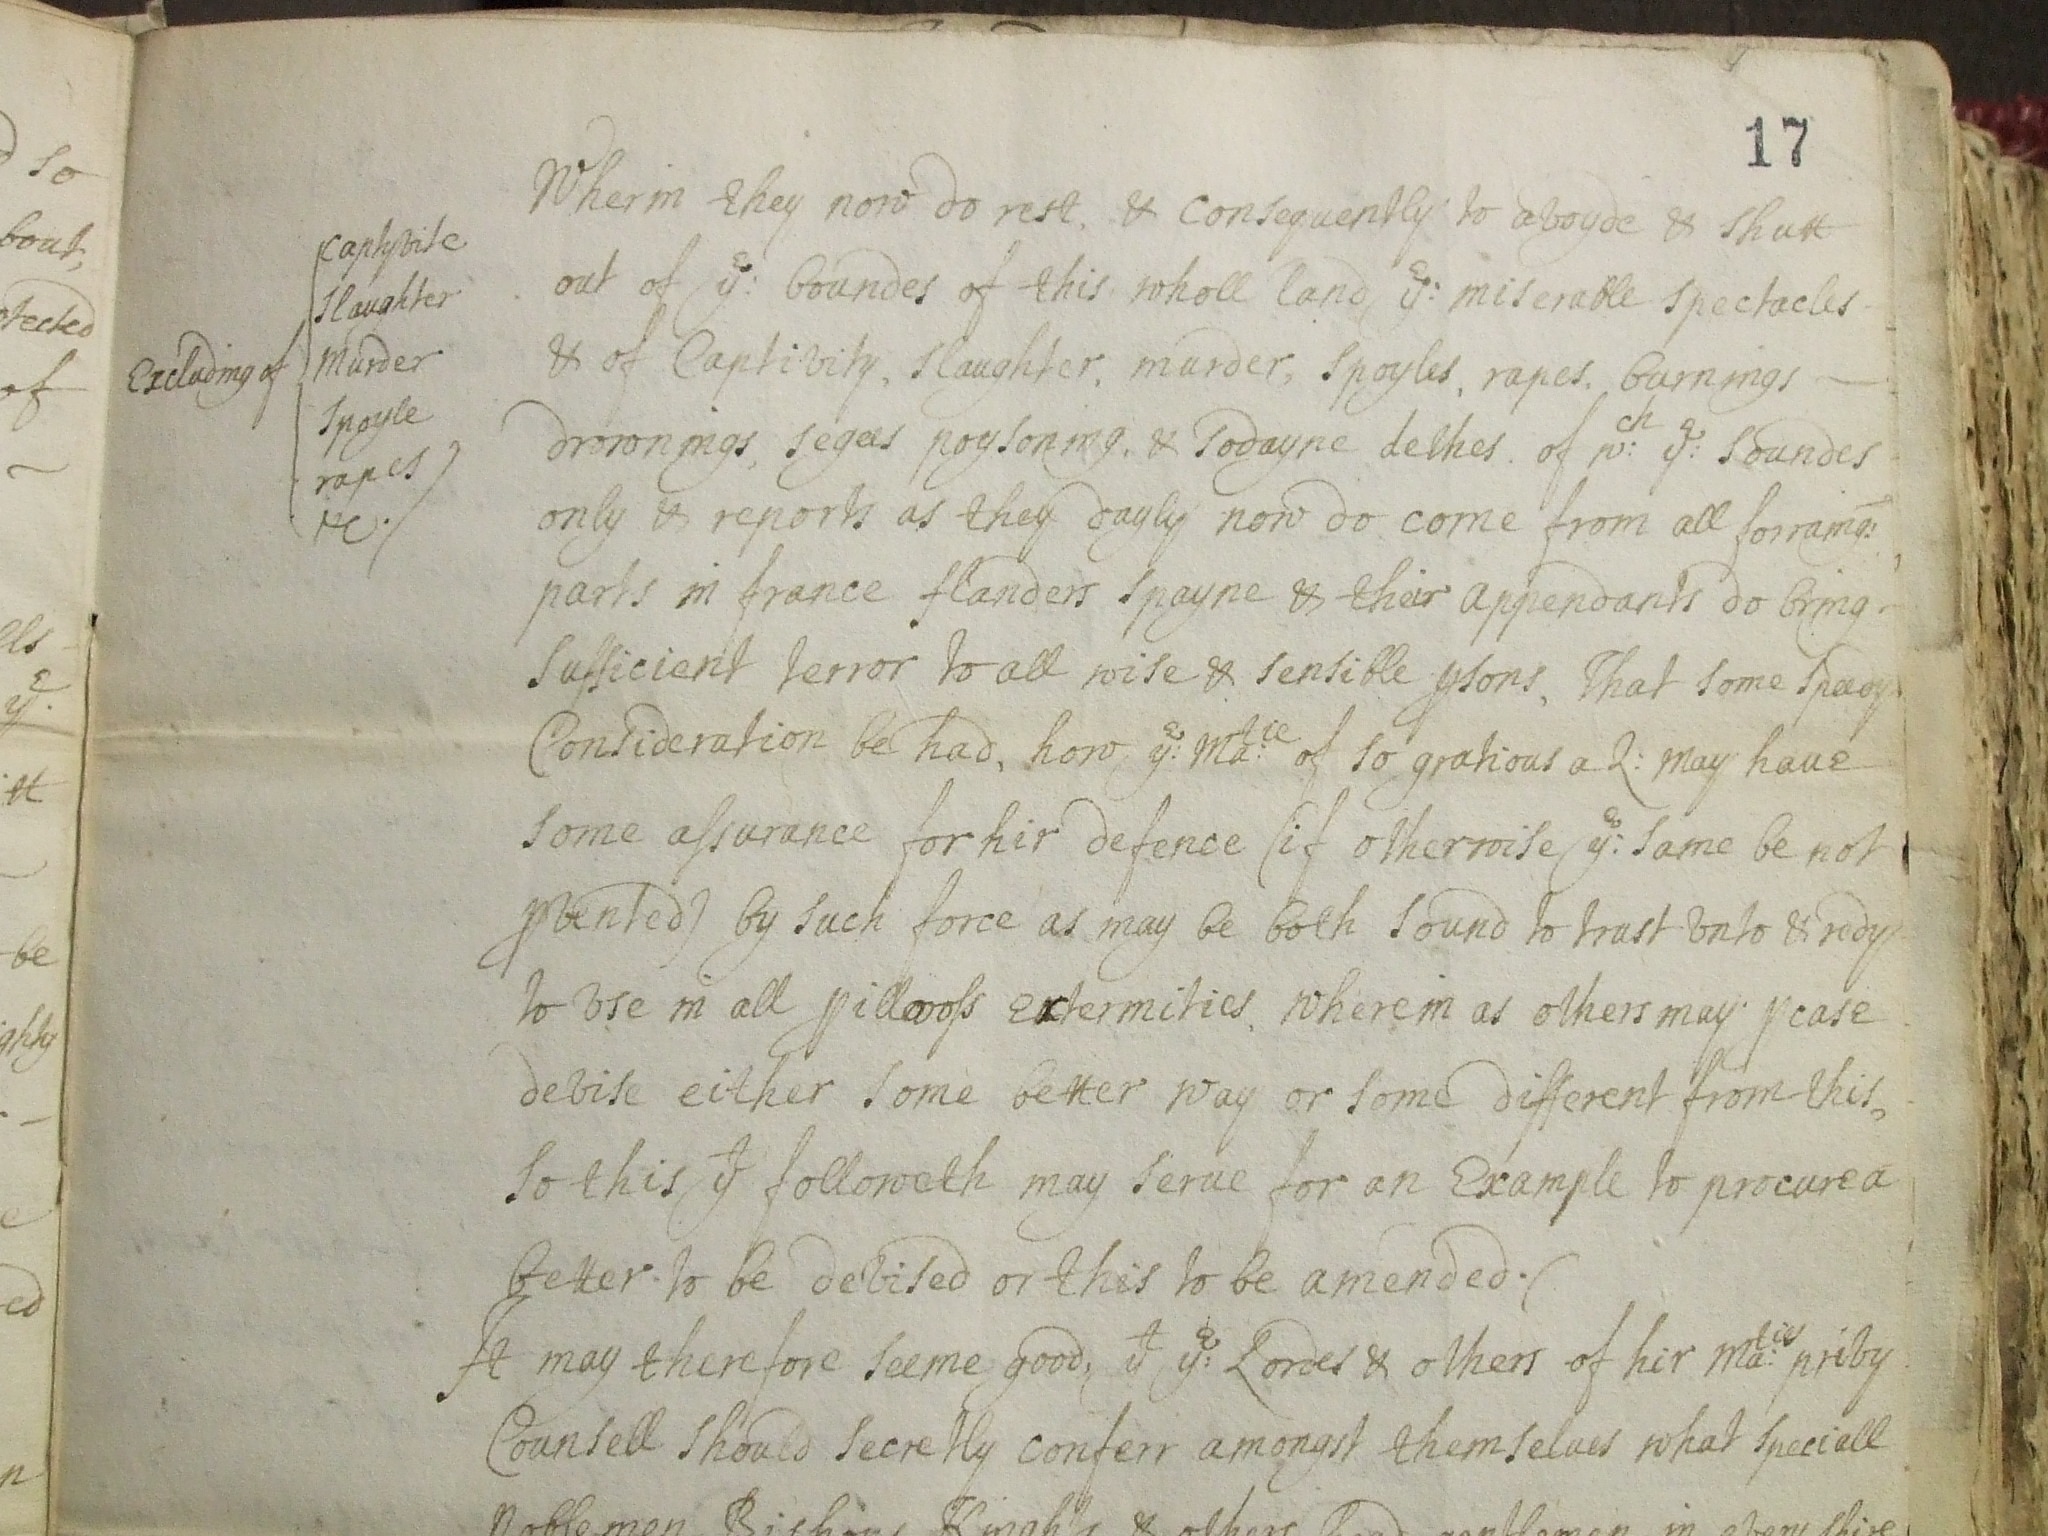 17
Wherin they now do rest. & consequently to aboyde & shutt
out of yᵉ: boundes of this wholl land yᵉ: miserable spectacles
& of Captivity, slaughter, murder, spoyles, rapes, burnings —
drownings, seges poysoning, & sodayne dethes. of wᶜʰ: yᵉ: soundes
only & reports as they dayly now do come from all forraing:
parts in france flanders spayne & their appendants do bring
sufficient terror to all wise & sensible psons, That some speedy
Consideration be had, how yᵉ: Maᵗⁱᵉ: of so gratious a Q: may haue
some assurance for hir defence (if otherwise yᵉ: same be not
pvented) by such force as may be both sound to trust vnto & redy
to vse in all extermities, wherein as others may pcase
devise either some better way or some different from this,
so this yᵗ followeth may serue for an Example to procure a
better to be devised or this to be amended.
It may therefore seeme good, yᵗ yᵉ: Lordes & others of hir Maᵗⁱᵉˢ: privy
Counsell should secretly conferr amongst themselues what speciall
Noblemen Bishops & others gentlemen in every shire
Excluding of
Captyvite
slaughter
murder
spoyle
rapes
&c.
so
bout,
otected
of
lls
yᵉ.
itt
be
ighty
e
ed
n